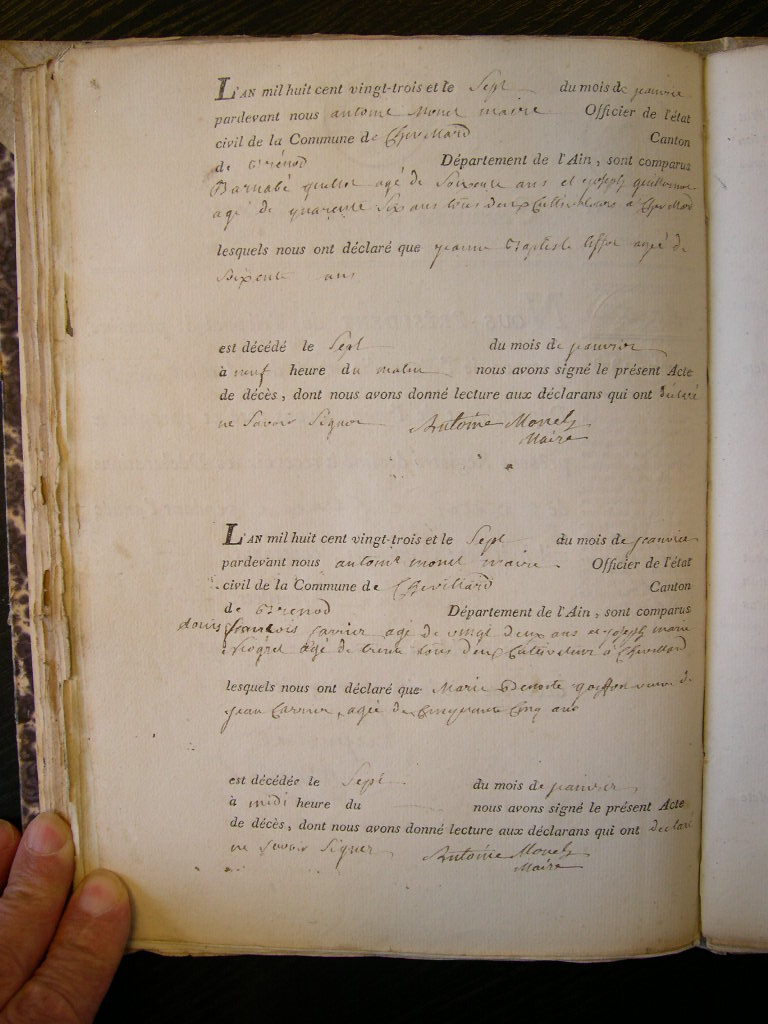 L'AN mil huit cent vingt-trois et le Sept du mois de janvier
pardevant nous antoine Monet maire Officier de l'état
civil de la Commune de Chevillard Canton
de Brénod Département de l'Ain, sont comparus
Barnabé agé de Soixente ans et joseph
agé de quarente Six ans tous deux Cultivateurs à Chevillard
lesquels nous ont déclaré que jeanne agée de
Soixente ans
est décédé le Sept du mois de janvier
à neuf heure du matin nous avons signé le présent Acte
de décès, dont nous avons donné lecture aux déclarans qui ont déclaré
ne Savoir Signer Antoine Monet
Maire
L'AN mil huit cent vingt-trois et le Sept du mois de janvier
pardevant nous antoine monet maire Officier de l'état
civil de la Commune de Chevillard Canton
de Brenod Département de l'Ain, sont comparus
louis francois carrier agé de vingt deux ans et joseph marie
agé de trente tous deux Cultivateur à Chevillard
lesquels nous ont déclaré que Marie goiffon veuve de
jean Carrier, agée de Cinquante Cinq ans
est décédée le Sept du mois de janvier
à midi heure du nous avons signé le présent Acte
de décès, dont nous avons donné lecture aux déclarans qui ont declaré
ne Savoir Signer Antoine Monet
Maire